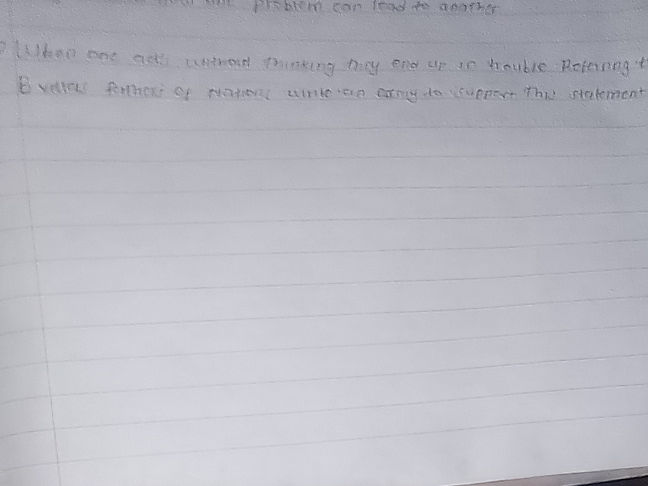 problem can lead to another
When one acts without thinking they end up in trouble Referring t
B vallas fathers of nations write an essay to support this statement